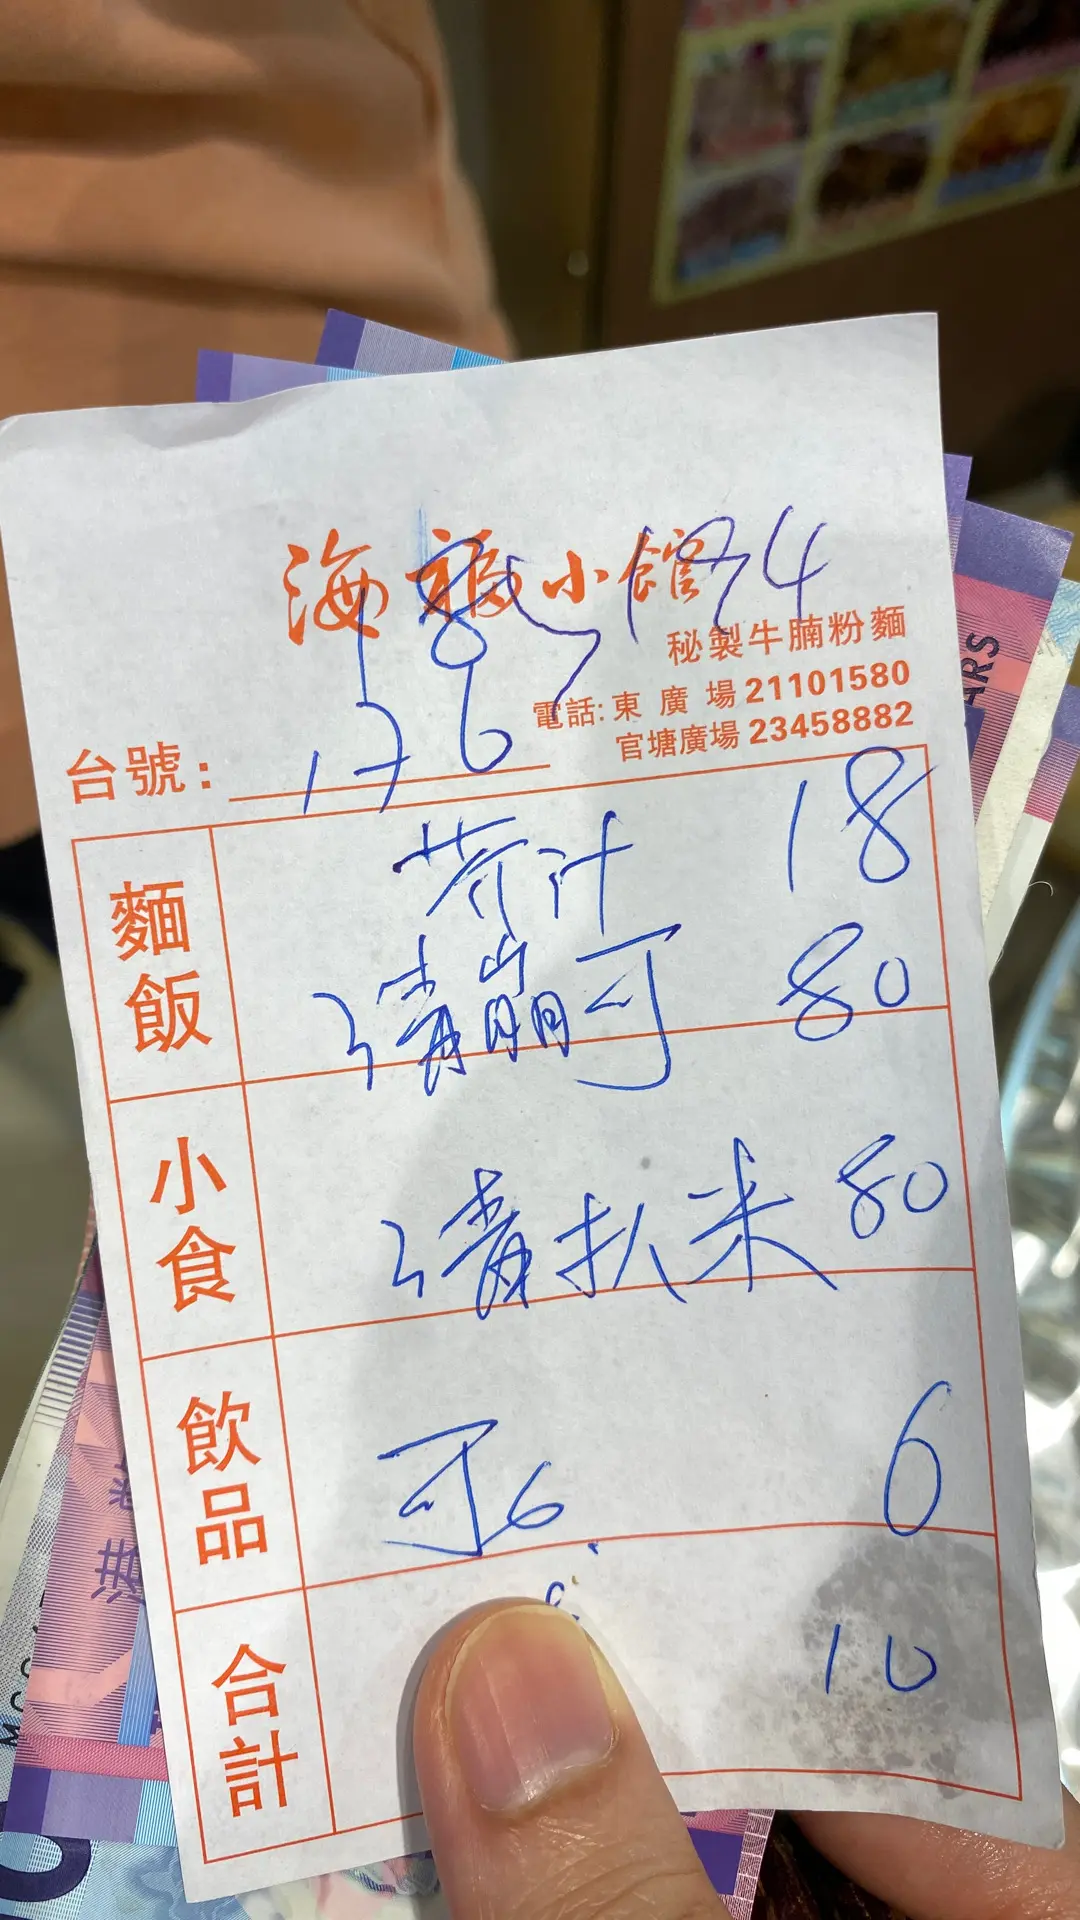 海韻小館
186 174
秘製牛腩粉麵
電話: 東廣場 21101580
官塘廣場 23458882
台號: 176
麵飯
芥汁 18
清崩可 80
小食
清扒米 80
飲品
可6 6
合計
10
MOC
ARS